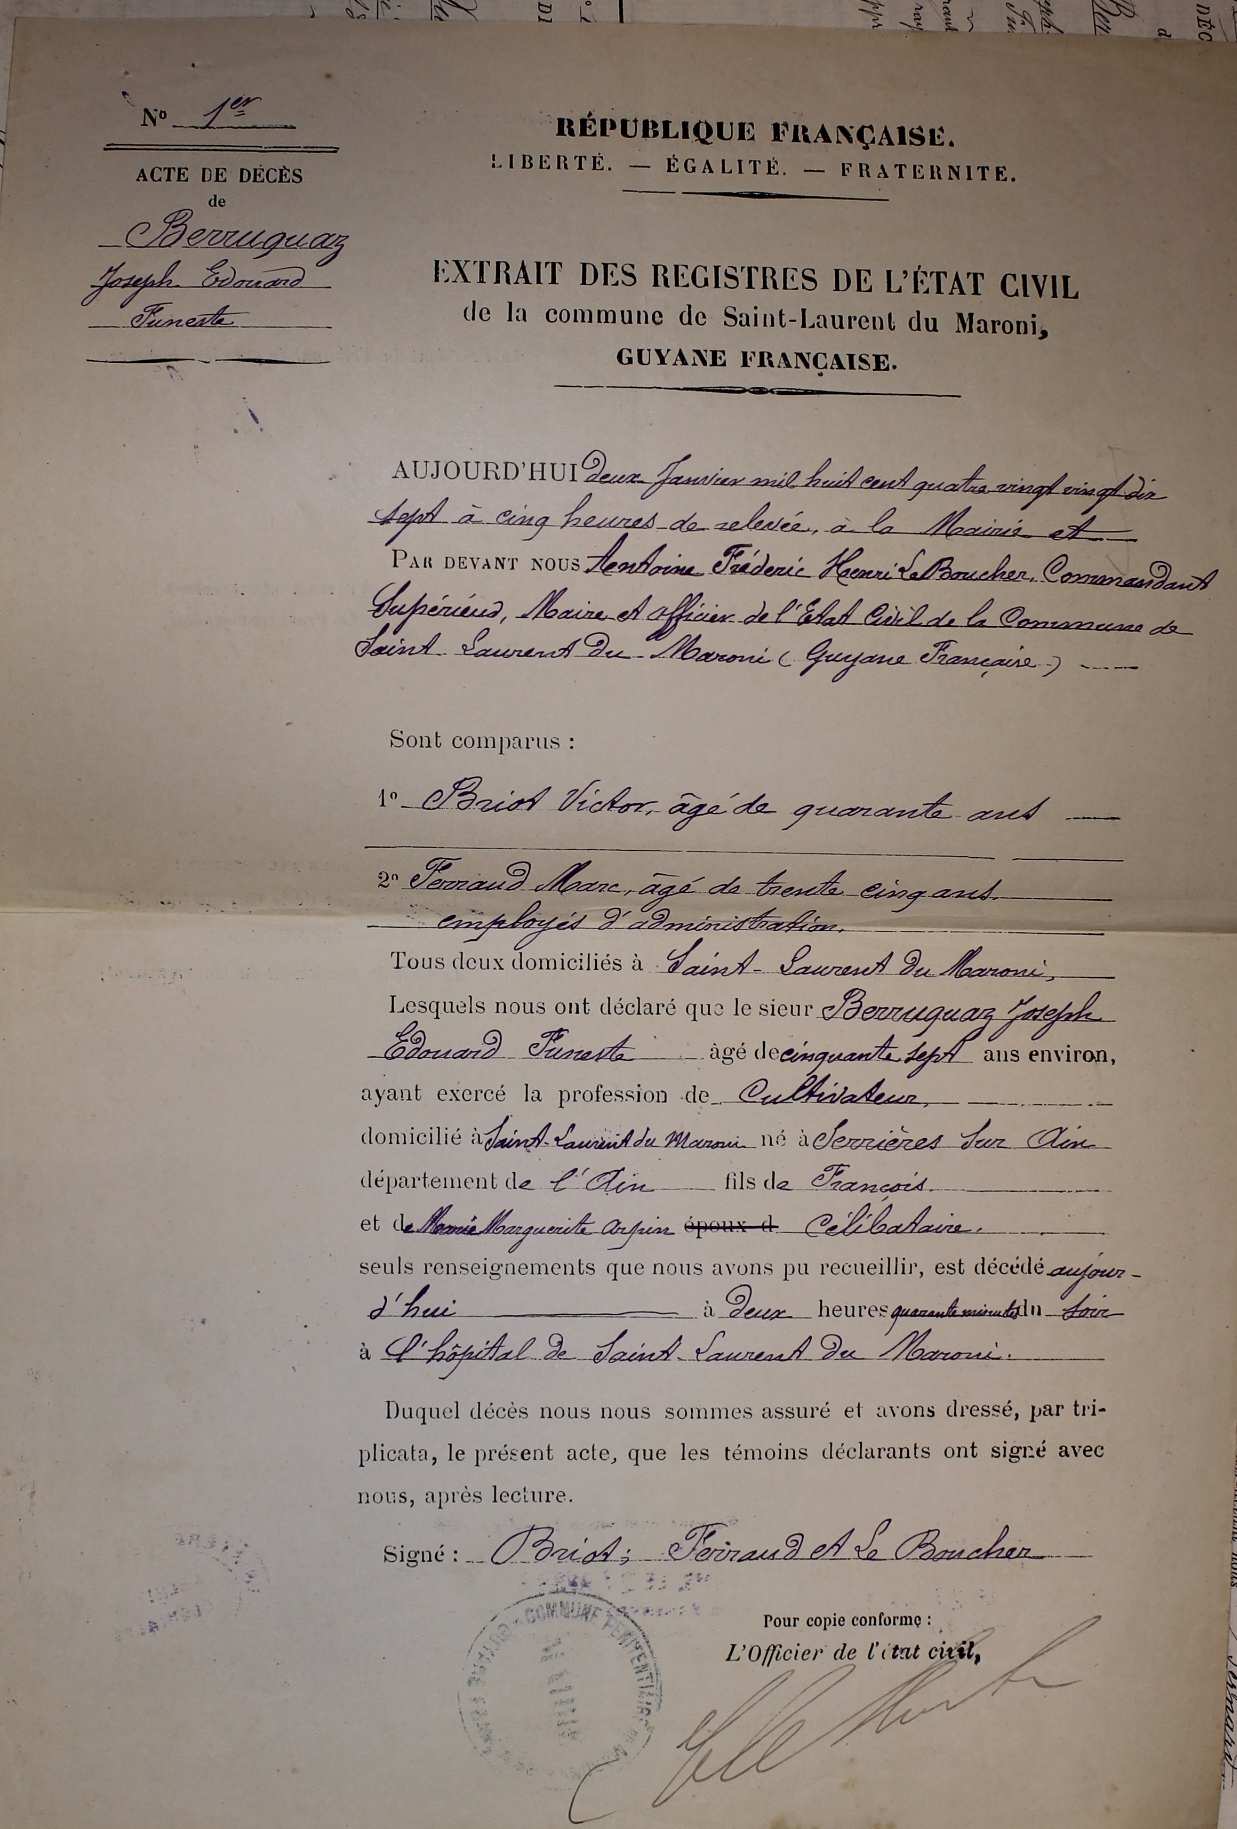 Nº 1er
ACTE DE DÉCÈS
de
Berruguaz
Joseph Edouard
Funeste
RÉPUBLIQUE FRANÇAISE.
LIBERTÉ. — ÉGALITÉ. — FRATERNITÉ.
EXTRAIT DES REGISTRES DE L'ÉTAT CIVIL
de la commune de Saint-Laurent du Maroni,
GUYANE FRANÇAISE.
AUJOURD'HUI deux Janvier mil huit cent quatre vingt vingt dix
sept à cinq heures de relevée, à la Mairie et
PAR DEVANT NOUS Antoine Fréderic Henri Le Boucher, Commandant
Supérieur, Maire et officier de l'Etat Civil de la Commune de
Saint Laurent du Maroni (Guyane Française)
Sont comparus :
1º Briot Victor, âgé de quarante ans
2º Ferraud Marc, âgé de trente cinq ans
employés d'administration.
Tous deux domiciliés à Saint-Laurent du Maroni,
Lesquels nous ont déclaré que le sieur Berruguaz Joseph
Edouard Funeste âgé de cinquante sept ans environ,
ayant exercé la profession de Cultivateur,
domicilié à Saint-Laurent du Maroni né à Serrières Sur Ain
département de l'Ain fils de François
et de Marie Marguerite Arpin époux d Célibataire.
seuls renseignements que nous avons pu recueillir, est décédé aujour-
d'hui à deux heures quarante minutes du soir
à l'hôpital de Saint-Laurent du Maroni.
Duquel décès nous nous sommes assuré et avons dressé, par tri-
plicata, le présent acte, que les témoins déclarants ont signé avec
nous, après lecture.
Signé : Briot ; Ferraud et Le Boucher
Pour copie conforme :
L'Officier de l'état civil,
COMMUNE PÉNITENTIAIRE